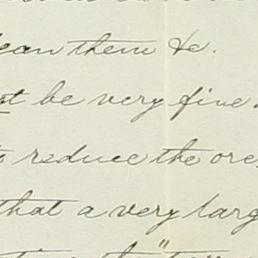 them &c.
be very fine
reduce the ore
that a very larg